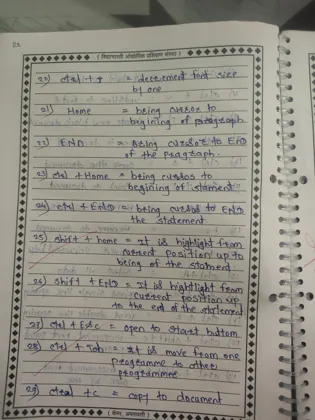 22
20) ctrl + = decrement font size
by one
21) Home = being cursor to
begining of paragraph
22 END = Bring cursor to END
of the paragraph.
23 ctrl + Home = being cursos to
begining of stament
24) ctrl + END = being cursos to END
the statement
25) shift + home = It is highlight from
current position up to
being of the stament.
26) shift + END = It is highlight from
current position up
to the end of the statement
27) ctrl + Esc = open to start button
28) ctrl + Tab = It is move from one
programme to other
programme
29) ctrl + c = copy to document